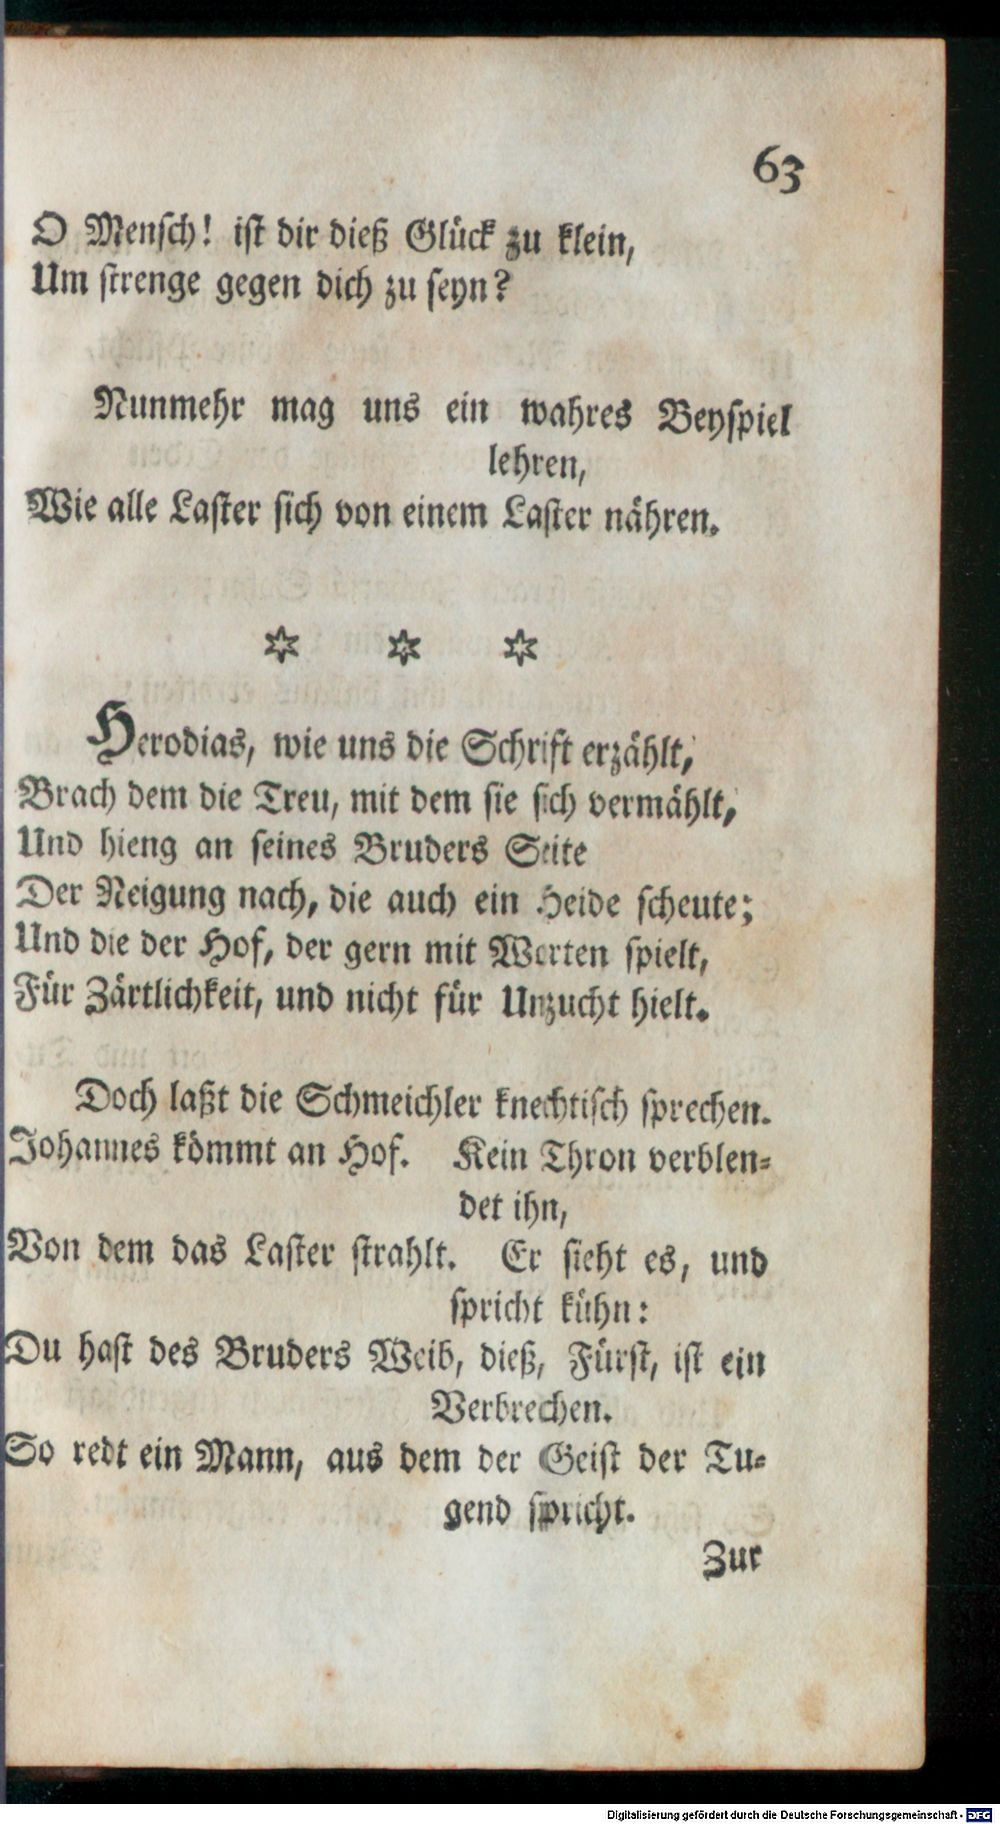 63
O Mensch! ist dir dieß Glück zu klein,
Um strenge gegen dich zu seyn?
Nunmehr mag uns ein wahres Beyspiel
lehren,
Wie alle Laster sich von einem Laster nähren.
* * *
Herodias, wie uns die Schrift erzählt,
Brach dem die Treu, mit dem sie sich vermählt,
Und hieng an seines Bruders Seite
Der Neigung nach, die auch ein Heide scheute;
Und die der Hof, der gern mit Worten spielt,
Für Zärtlichkeit, und nicht für Unzucht hielt.
Doch laßt die Schmeichler knechtisch sprechen.
Johannes kömmt an Hof. Kein Thron verblen-
det ihn,
Von dem das Laster strahlt. Er sieht es, und
spricht kühn:
Du hast des Bruders Weib, dieß, Fürst, ist ein
Verbrechen.
So redt ein Mann, aus dem der Geist der Tu-
gend spricht.
Zur
Digitalisierung gefördert durch die Deutsche Forschungsgemeinschaft - DFG